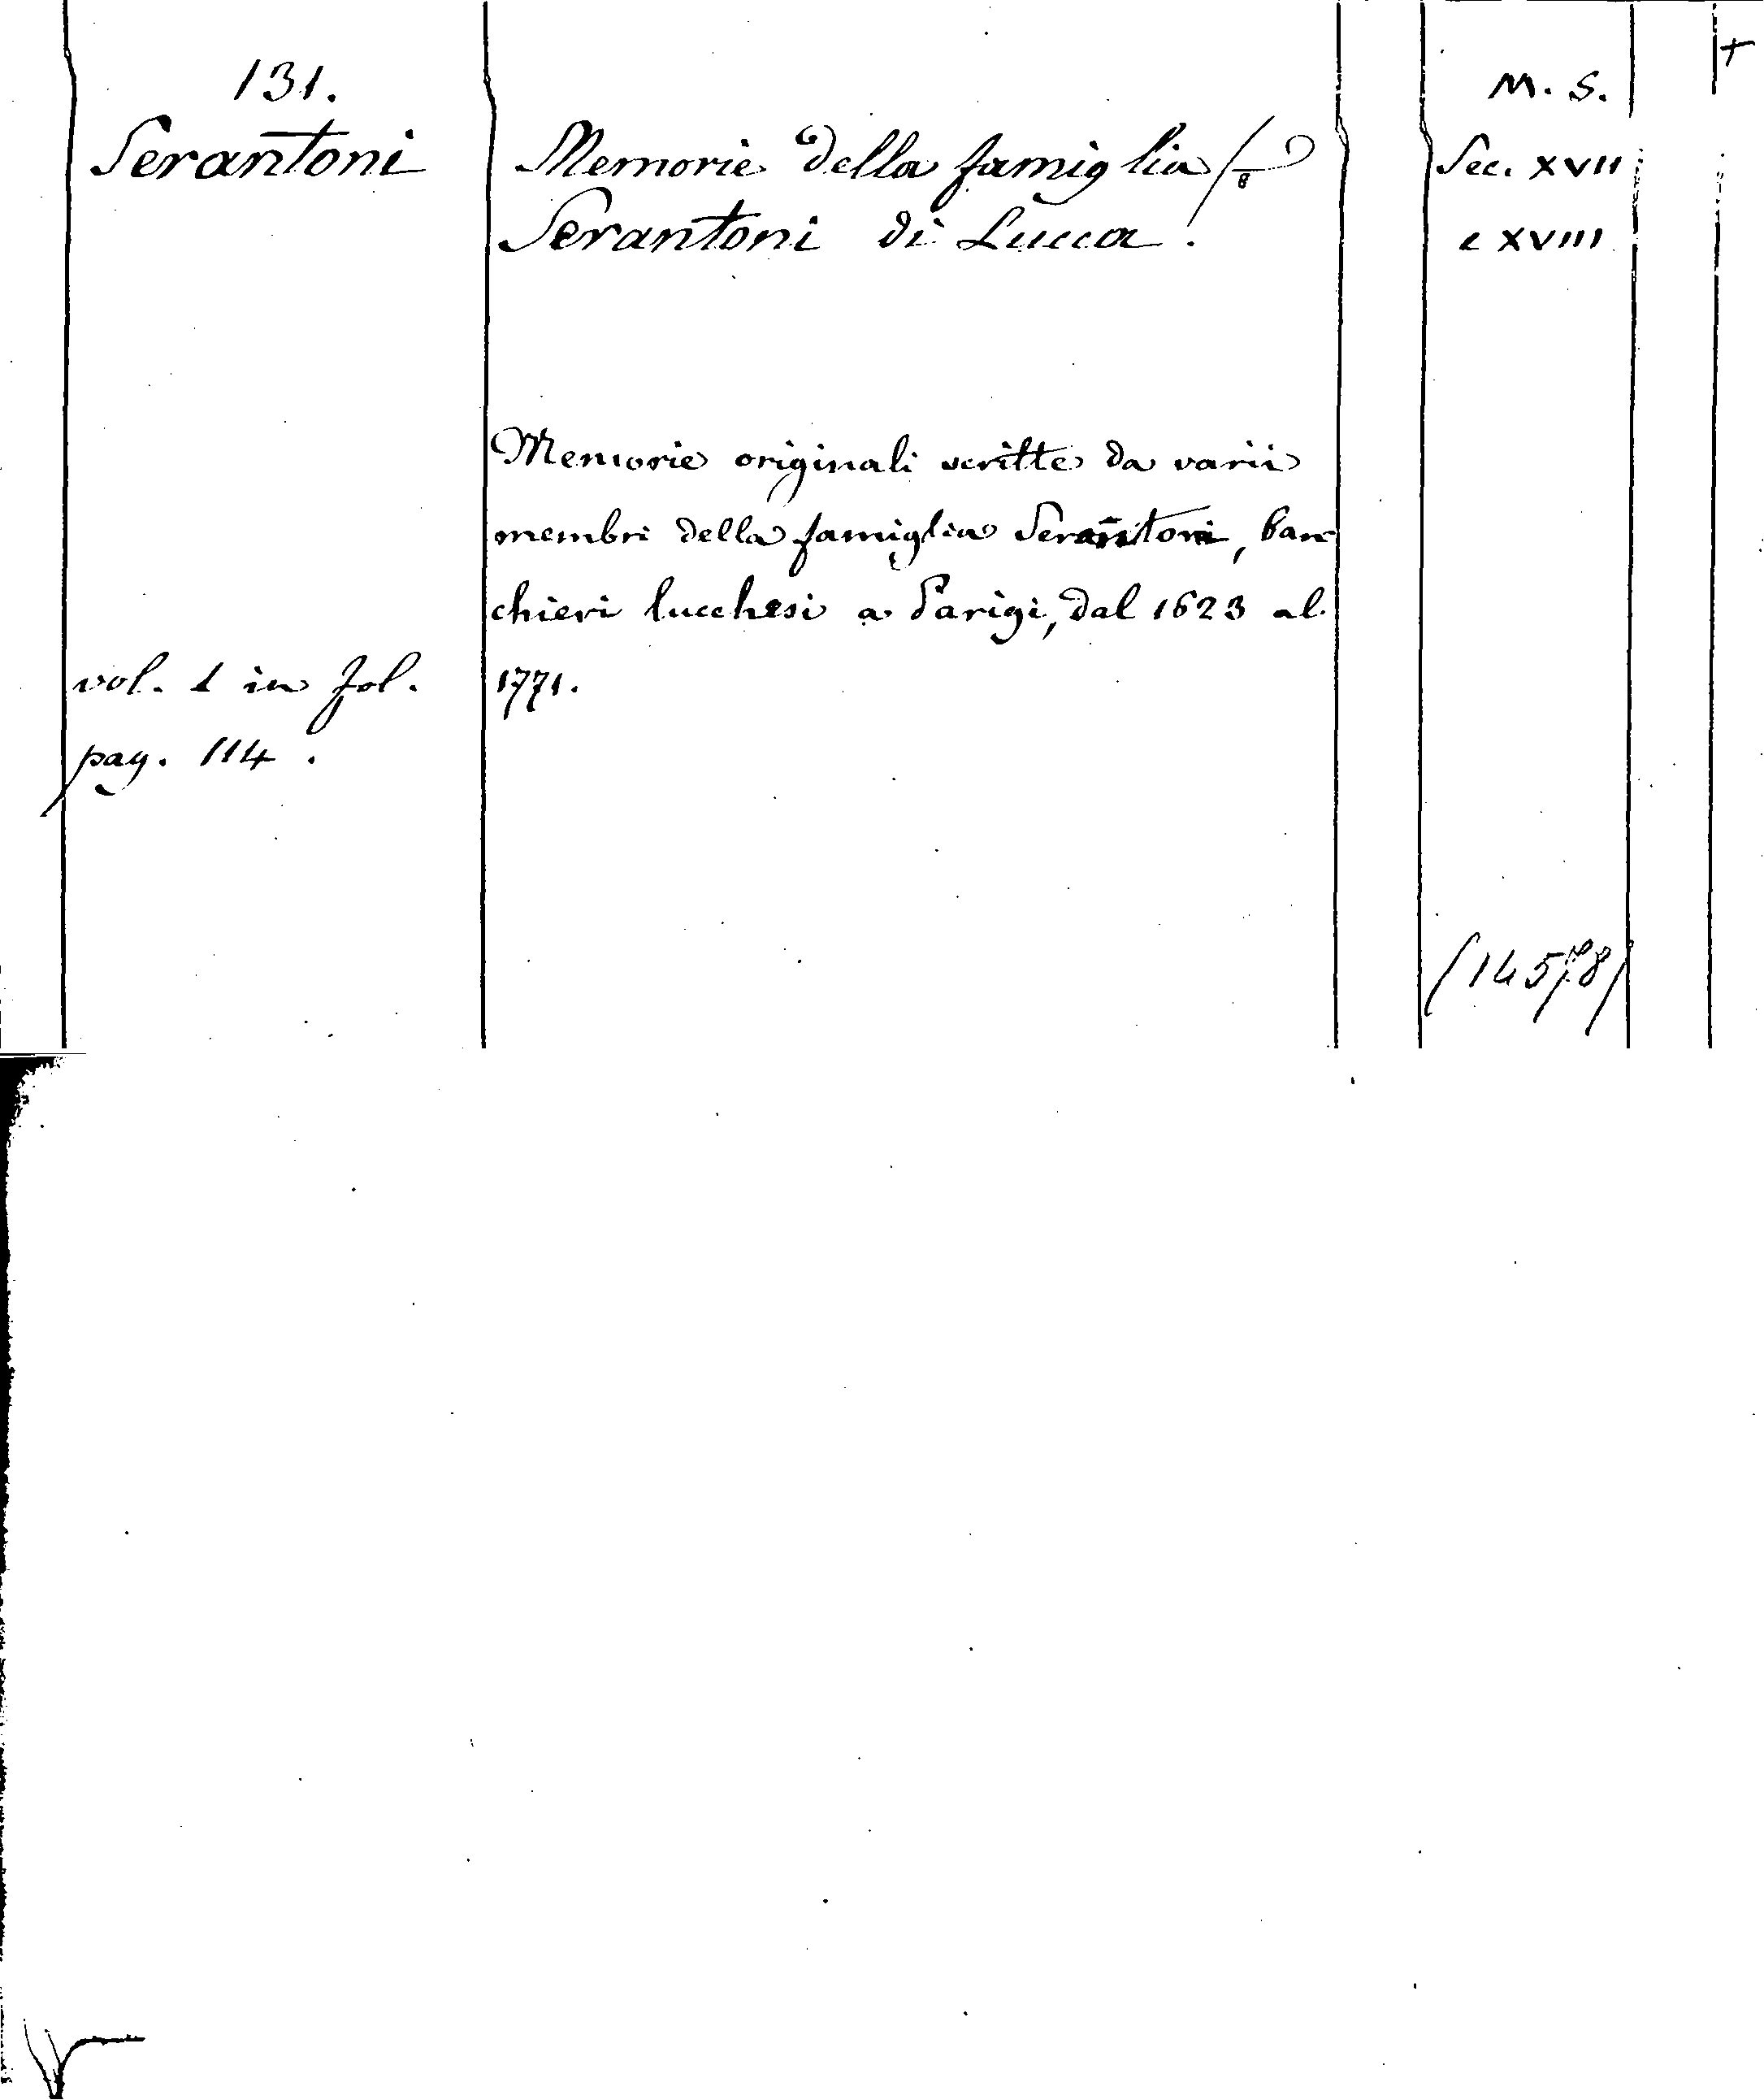 131.
Serantoni
vol. 1 in fol.
pag. 114.
Memorie della famiglia
Serantoni di Lucca.
Memorie originali scritte da varii
membri della famiglia Serantoni, ban
chieri lucchesi a Parigi, dal 1623 al
1771.
M. S.
Sec. XVII
e XVIII